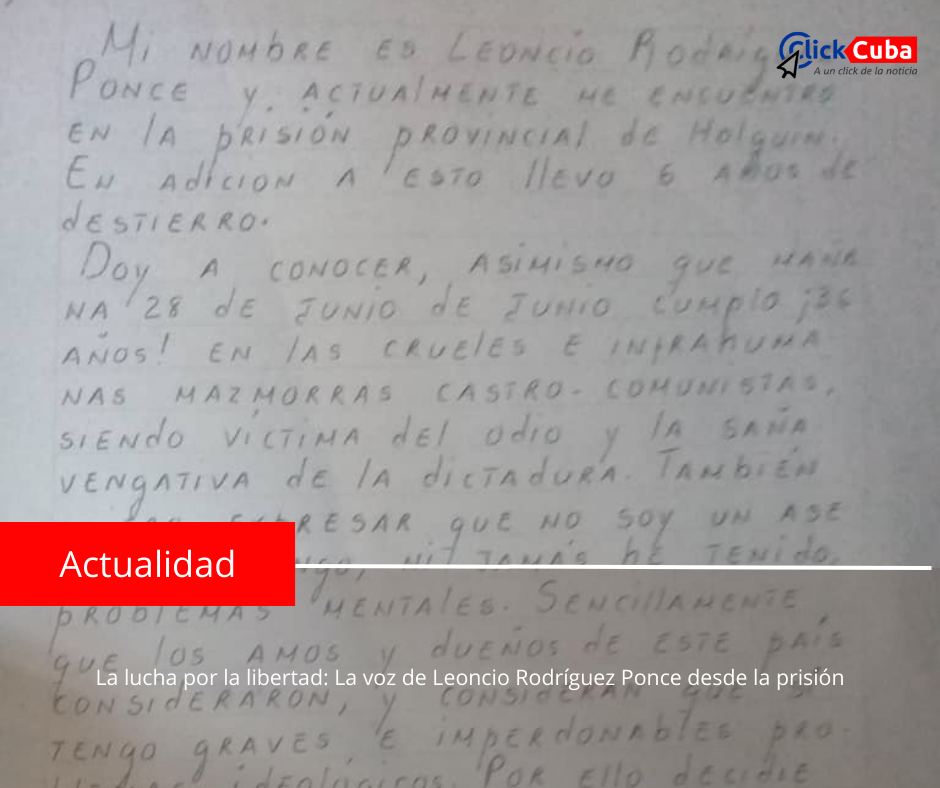 Mi NOMbRE ES LEONCiO RodRig
ClickCuba
A un click de la noticia
PONCE y ACTUAlMENTE ME ENCUENTRO
EN lA pRISIÓN pROVINCIAl de Holguin.
EN AdicioN A ESTO llEVO 6 AÑOS dE
dESTIERRO.
Doy A CONOCER, ASIMISMO que MAÑA
NA 28 dE JUNIO dE JUNIO CUMplO ¡36
AÑOS! EN lAS CRUElES E INfRAHUMA
NAS MAZMORRAS CASTRO-COMUNISTAS,
SIENdO VÍCTIMA dEl OdIO y lA SAÑA
VENgATIVA dE lA dICTAdURA. TAMbIÉN
RESAR quE NO SOy UN ASE
Actualidad
NI JAMÁS hE TENIdO
pROblEMAS MENTAlES. SENCIllAMENTE
quE lOS AMOS y duEÑOS dE ESTE pAÍS
La lucha por la libertad: La voz de Leoncio Rodríguez Ponce desde la prisión
CONSIdERARON, y CONSIdERAN quE
TENgO gRAVES E IMpERdONAblES pRO-
IdEOlÓgICOS. POR Ello dECIdIE